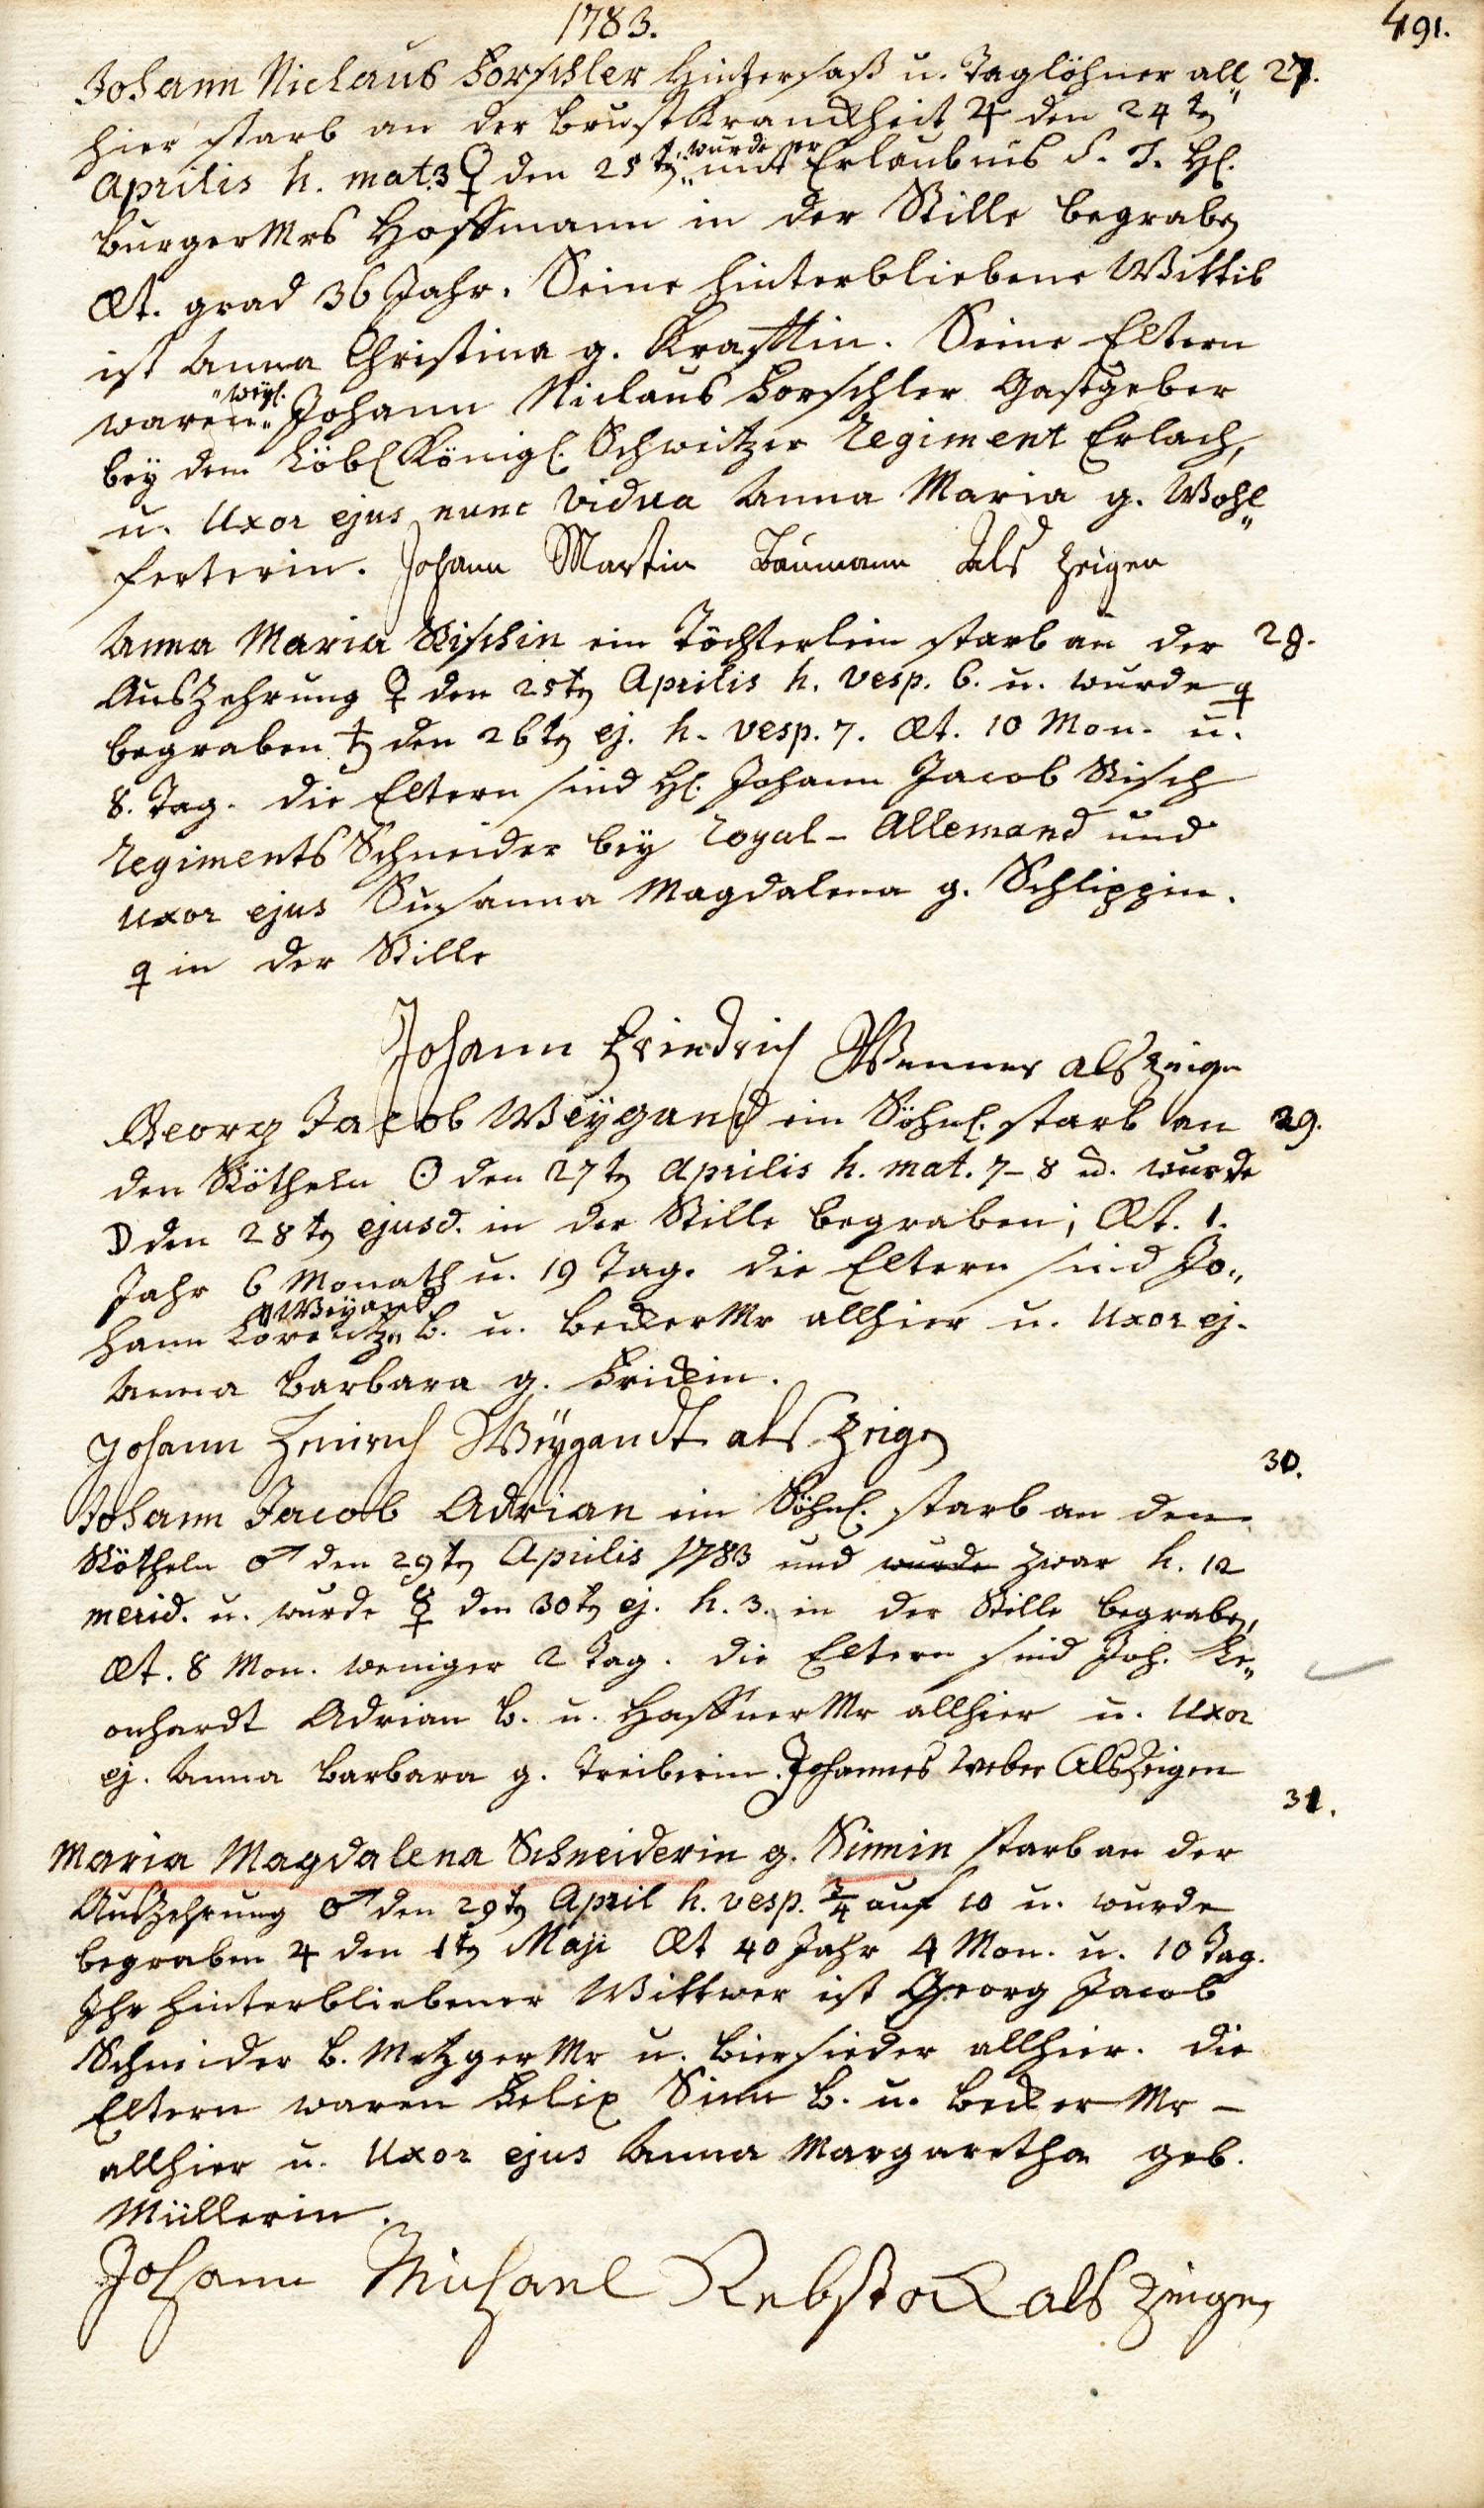 1783.
491.
Johann Niclaus Forschler Hintersaß u. Taglöhner all„ 27.
hier starb an der Brust Kranckheit ♃ den 24ten
Aprilis h. mat. 3 ♀ den 25ten „wurde er
mit Erlaubnis S. T. H.
Burger Mrs Hoffmann in der Stille begraben
Æt. grad 36 Jahr. Seine hinterbliebene Wittib
ist Anna Christina g. Krafftin. Seine Eltern
waren „weyl. Johann Niclaus Forschler Gastgeber
bey dem Löbl Königl. Schweitzer Regiment Erlach,
u. Uxor ejus nunc Vidua Anna Maria g. Wohl„
ferterin. Johann Martin Baumann Als Zeigen
Anna Maria Kischin ein Töchterlein starb an der 28.
Auszehrung ♀ den 25ten Aprilis h. vesp. 6. u. wurde ♀
begraben ♄ den 26ten ej. h. vesp. 7. Æt. 10 Mon. u.
8. Tag. die Eltern sind H. Johann Jacob Kisch
Regiments Schneider bey Royal-Allemand und
Uxor ejus Susanna Magdalena g. Schlippin.
♀ in der Stille
Johann Friedrich Wenner als Zeigen
Georg Jacob Weygand ein Söhnl. starb an 29.
den Rötheln ☉ den 27ten Aprilis h. mat. 7-8 u. wurde
☽ den 28ten ejusd. in der Stille begraben; Æt. 1.
Jahr 6 Monath u. 19 Tag. die Eltern sind Jo„
hann Lorentz Weygand B. u. Becker Mr allhier u. Uxor ej.
Anna Barbara g. Frickin.
Johann Henrich Weygandt als Zeigen
30.
Johann Jacob Adrian ein Söhnl. starb an den
Rötheln ♂ den 29ten Aprilis 1783 und wurde zwar h. 12
merid. u. wurde ☿ den 30ten ej. h. 3. in der Stille begraben,
Æt. 8 Mon. weniger 2 Tag. die Eltern sind Joh. Le„
onhardt Adrian B. u. Haffner Mr allhier u. Uxor
ej. Anna Barbara g. Treiberin. Johannes Weber Als Zeigen
31.
Maria Magdalena Schneiderin g. Sinnin starb an der
Auszehrung ♂ den 29ten April h. vesp. 3/4 auf 10 u. wurde
begraben ♃ den 1ten Maji Æt 40 Jahr 4 Mon. u. 10 Tag.
Ihr hinterbliebener Wittwer ist Georg Jacob
Schneider B. Metzger Mr u. Biersieder allhier. die
Eltern waren Felix Sinn B. u. Becker Mr -
allhier u. Uxor ejus Anna Margaretha geb.
Müllerin.
Johann Michael Rebstock als Zeigen